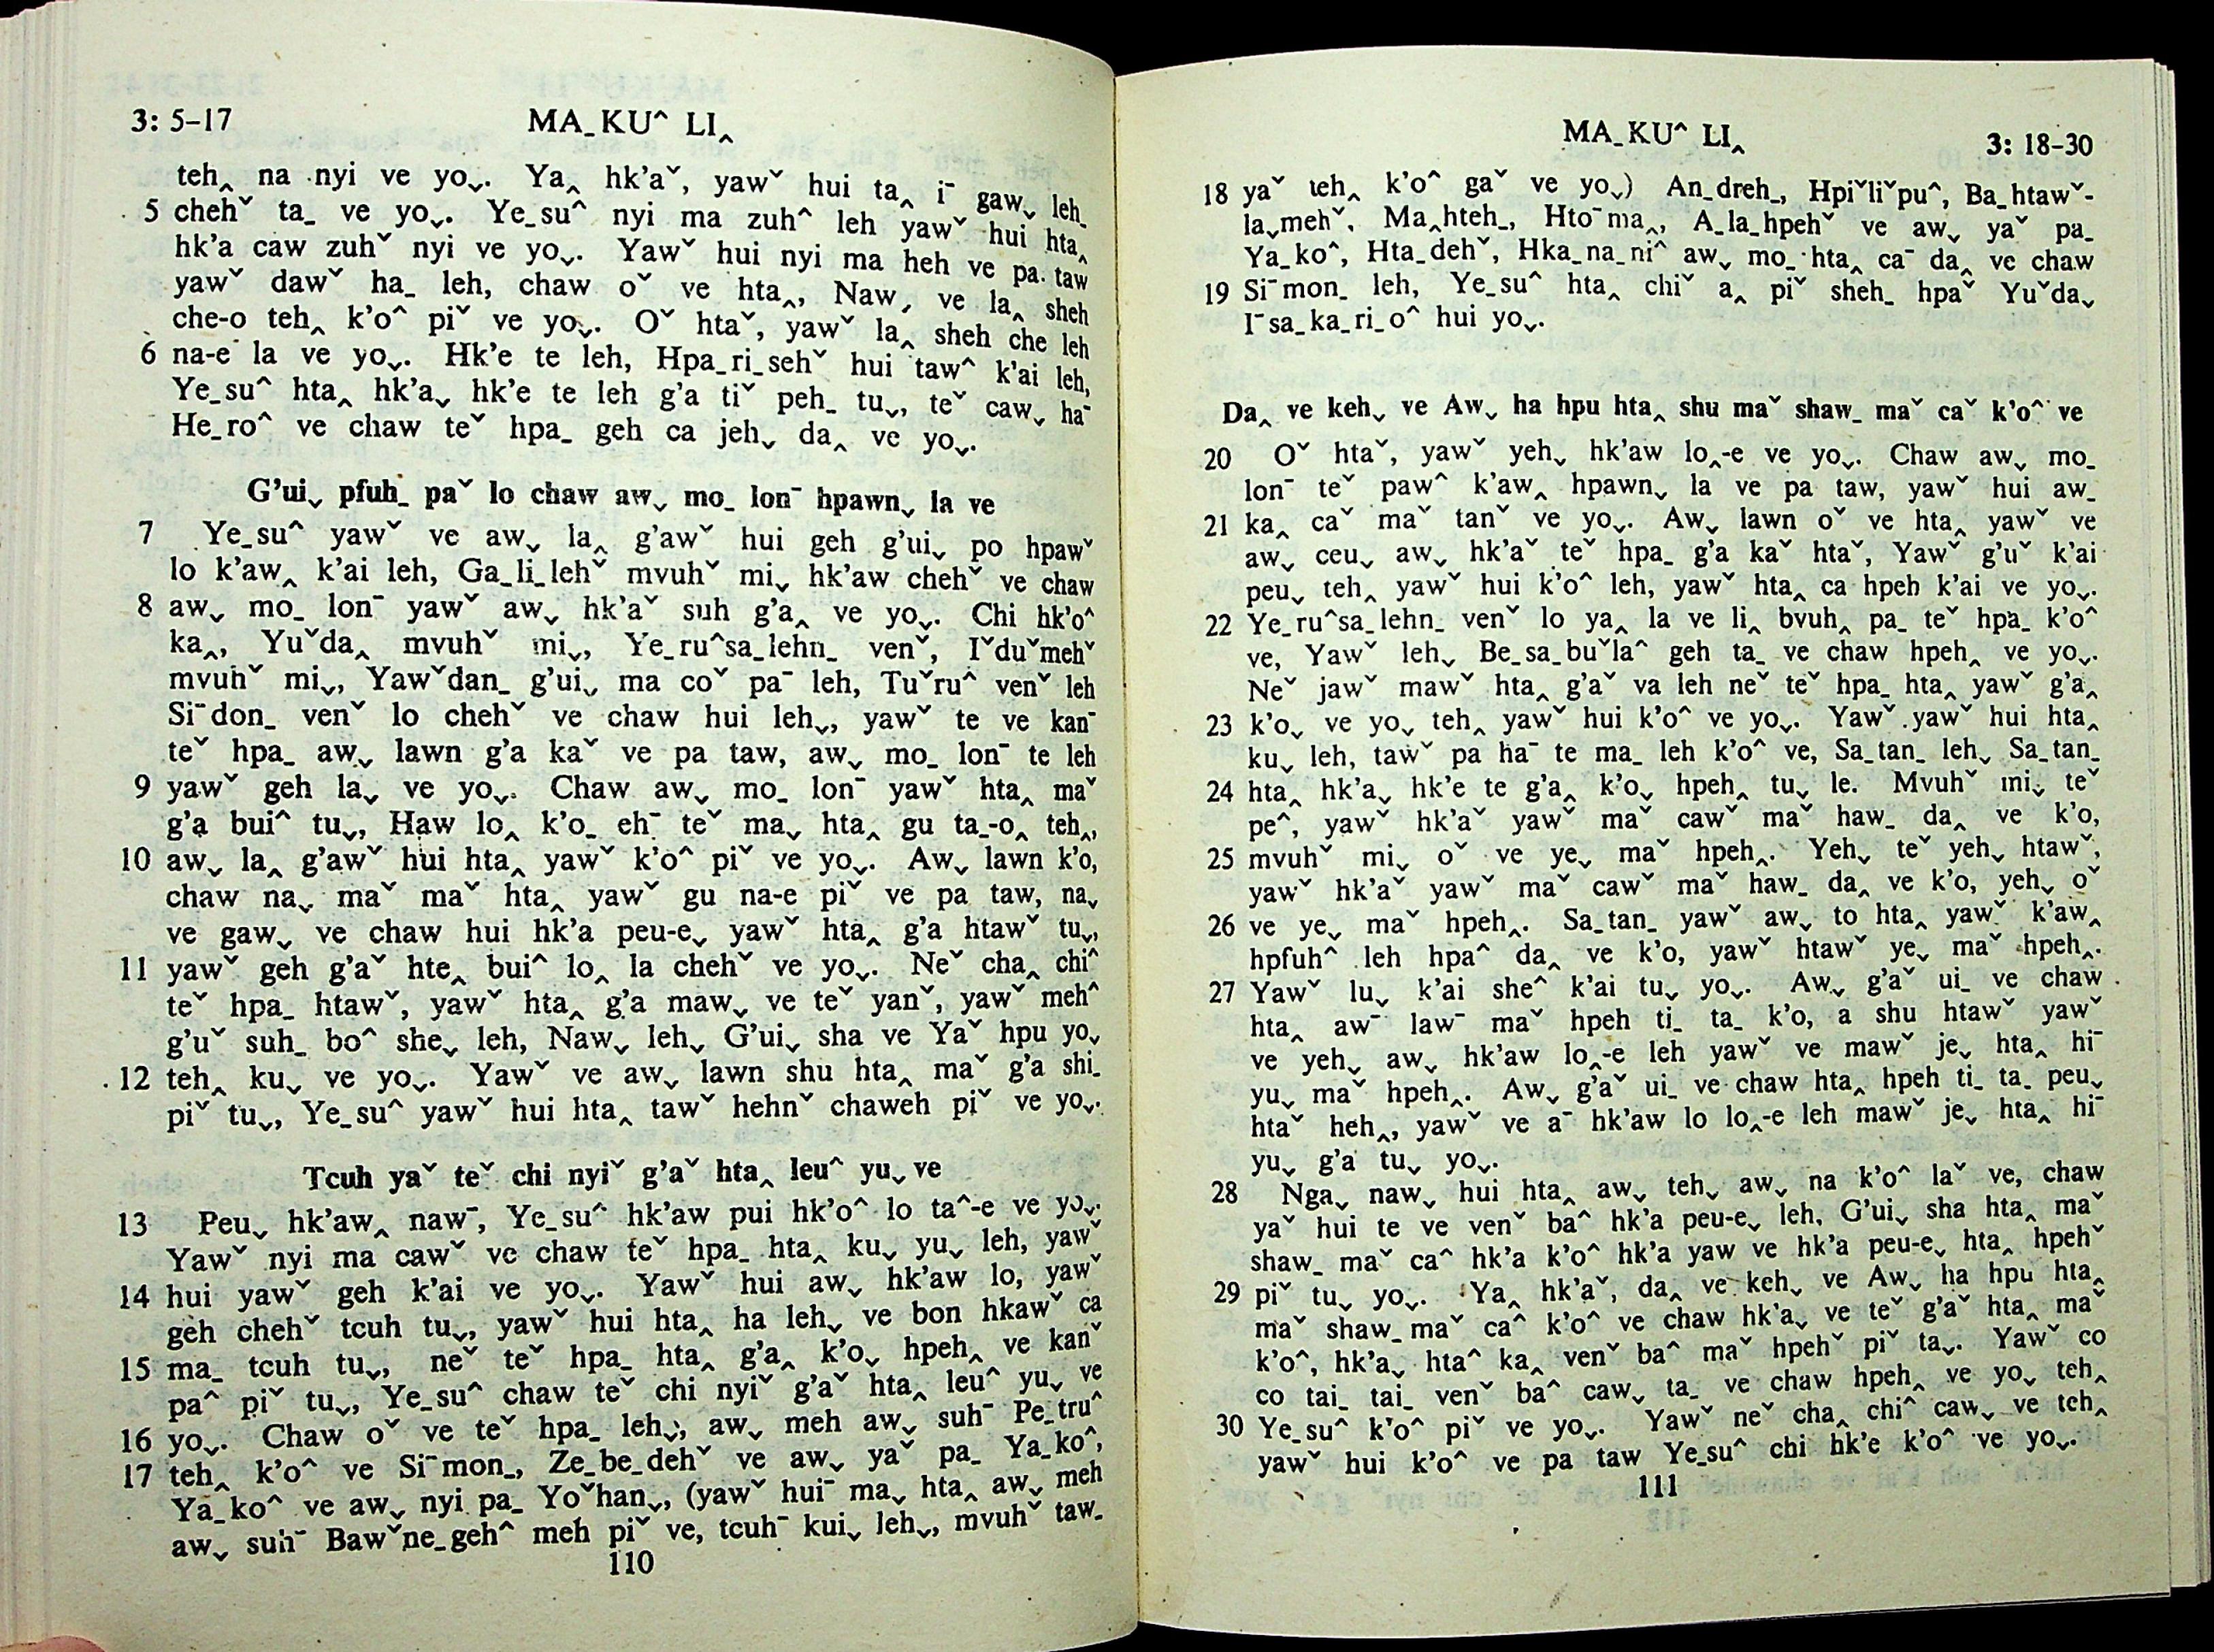 3: 5–17
MA_KUˆ LI‸
teh‸ na nyi ve yoˬ. Ya‸ hk’aˇ, yawˇ hui ta‸ iˉ gawˬ leh_
5 chehˇ ta_ ve yoˬ. Ye_suˆ nyi ma zuhˆ leh yawˇ hui hta‸
hk’a caw zuhˇ nyi ve yoˬ. Yawˇ hui nyi ma heh ve pa taw
yawˇ dawˇ ha_ leh, chaw oˇ ve hta‸, Nawˬ ve la‸ sheh
che-o teh‸ k’oˆ piˇ ve yoˬ. Oˇ htaˇ, yawˇ la‸ sheh che leh
6 na-e la ve yoˬ. Hk’e te leh, Hpa_ri_sehˇ hui tawˆ k’ai leh,
Ye_suˆ hta‸ hk’aˬ hk’e te leh g’a tiˇ peh_ tuˬ, teˇ cawˬ haˉ
He_roˆ ve chaw teˇ hpa_ geh ca jehˬ da‸ ve yoˬ.
G’uiˬ pfuh_ paˇ lo chaw awˬ mo_ lonˉ hpawnˬ la ve
7 Ye_suˆ yawˇ ve awˬ la‸ g’awˇ hui geh g’uiˬ po hpawˇ
lo k’aw‸ k’ai leh, Ga_li_lehˇ mvuhˇ miˬ hk’aw chehˇ ve chaw
8 awˬ mo_ lonˉ yawˇ awˬ hk’aˇ suh g’a‸ ve yoˬ. Chi hk’oˆ
ka‸, Yuˇda‸ mvuhˇ miˬ, Ye_ruˆsa_lehn_ venˇ, Iˇduˇmehˇ
mvuhˇ miˬ, Yawˇdan_ g’uiˬ ma coˇ paˉ leh, Tuˇruˆ venˇ leh
Siˉdon_ venˇ lo chehˇ ve chaw hui lehˬ, yawˇ te ve kanˉ
teˇ hpa_ awˬ lawn g’a kaˇ ve pa taw, awˬ mo_ lonˉ te leh
9 yawˇ geh laˬ ve yoˬ. Chaw awˬ mo_ lonˉ yawˇ hta‸ maˇ
g’a buiˆ tuˬ, Haw lo‸ k’o_ ehˉ teˇ maˬ hta‸ gu ta_-o‸ teh‸,
10 awˬ la‸ g’awˇ hui hta‸ yawˇ k’oˆ piˇ ve yoˬ. Awˬ lawn k’o,
chaw naˬ maˇ maˇ hta‸ yawˇ gu na-e piˇ ve pa taw, naˬ
ve gawˬ ve chaw hui hk’a peu-eˬ yawˇ hta‸ g’a htawˇ tuˬ,
11 yawˇ geh g’aˇ hte‸ buiˆ lo‸ la chehˇ ve yoˬ. Neˇ cha‸ chiˆ
teˇ hpa_ htawˇ, yawˇ hta‸ g’a mawˬ ve teˇ yanˇ, yawˇ mehˆ
g’uˇ suh_ boˆ sheˬ leh, Nawˬ lehˬ G’uiˬ sha ve Yaˇ hpu yoˬ
12 teh‸ kuˬ ve yoˬ. Yawˇ ve awˬ lawn shu hta‸ maˇ g’a shi_
piˇ tuˬ, Ye_suˆ yawˇ hui hta‸ tawˇ hehnˇ chaweh piˇ ve yoˬ.
Tcuh yaˇ teˇ chi nyiˇ g’aˇ hta‸ leuˆ yuˬ ve
13 Peuˬ hk’aw‸ nawˉ, Ye_suˆ hk’aw pui hk’oˆ lo taˆ-e ve yoˬ.
Yawˇ nyi ma cawˇ ve chaw teˇ hpa_ hta‸ kuˬ yuˬ leh, yawˇ
14 hui yawˇ geh k’ai ve yoˬ. Yawˇ hui awˬ hk’aw lo, yawˇ
geh chehˇ tcuh tuˬ, yawˇ hui hta‸ ha lehˬ ve bon hkawˇ ca
15 ma_ tcuh tuˬ, neˇ teˇ hpa_ hta‸ g’a‸ k’oˬ hpeh‸ ve kanˇ
paˆ piˇ tuˬ, Ye_suˆ chaw teˇ chi nyiˇ g’aˇ hta‸ leuˆ yuˬ ve
16 yoˬ. Chaw oˇ ve teˇ hpa_ lehˬ; awˬ meh awˬ suhˉ Pe_truˆ
17 teh‸ k’oˆ ve Siˉmon_, Ze_be_dehˇ ve awˬ yaˇ pa_ Ya_koˆ,
Ya_koˆ ve awˬ nyi pa_ Yoˇhanˬ, (yawˇ huiˉ maˬ hta‸ awˬ meh
awˬ suhˉ Bawˇne_gehˆ meh piˇ ve, tcuhˉ kuiˬ lehˬ, mvuhˇ taw_
110
MA_KUˆ LI‸
3: 18–30
18 yaˇ teh‸ k’oˆ gaˇ ve yoˬ) An_dreh_, Hpiˇliˇpuˆ, Ba_htawˇ-
laˬmehˇ, Ma‸hteh_, Htoˉma‸, A_la_hpehˇ ve awˬ yaˇ pa_
Ya_koˆ, Hta_dehˇ, Hka_na_niˆ awˬ mo_ hta‸ caˉ da‸ ve chaw
19 Siˉmon_ leh, Ye_suˆ hta‸ chiˇ a‸ piˇ sheh_ hpaˇ Yuˇdaˬ
Iˉsa_ka_ri_oˆ hui yoˬ.
Da‸ ve kehˬ ve Awˬ ha hpu hta‸ shu maˇ shaw_ maˇ caˇ k’oˆ ve
20 Oˇ htaˇ, yawˇ yehˬ hk’aw lo‸-e ve yoˬ. Chaw awˬ mo_
lonˉ teˇ pawˆ k’aw‸ hpawnˬ la ve pa taw, yawˇ hui aw_
21 ka‸ caˇ maˇ tanˇ ve yoˬ. Awˬ lawn oˇ ve hta‸ yawˇ ve
awˬ ceuˬ awˬ hk’aˇ teˇ hpa_ g’a kaˇ htaˇ, Yawˇ g’uˇ k’ai
peuˬ teh‸ yawˇ hui k’oˆ leh, yawˇ hta‸ ca hpeh k’ai ve yoˬ.
22 Ye_ruˆsa_lehn_ venˇ lo ya‸ la ve li‸ bvuh‸ pa_ teˇ hpa_ k’oˆ
ve, Yawˇ lehˬ Be_sa_buˇlaˆ geh ta_ ve chaw hpeh‸ ve yoˬ.
Neˇ jawˇ mawˇ hta‸ g’aˇ va leh neˇ teˇ hpa_ hta‸ yawˇ g’a‸
23 k’oˬ ve yoˬ teh‸ yawˇ hui k’oˆ ve yoˬ. Yawˇ yawˇ hui hta‸
kuˬ leh, tawˇ pa haˉ te ma_ leh k’oˆ ve, Sa_tan_ lehˬ Sa_tan_
24 hta‸ hk’aˬ hk’e te g’a‸ k’oˬ hpeh‸ tuˬ le. Mvuhˇ miˬ teˇ
peˆ, yawˇ hk’aˇ yawˇ maˇ cawˇ maˇ haw_ da‸ ve k’o,
25 mvuhˇ miˬ oˇ ve yeˬ maˇ hpeh‸. Yehˬ teˇ yehˬ htawˇ,
yawˇ hk’aˇ yawˇ maˇ cawˇ maˇ haw_ da‸ ve k’o, yehˬ oˇ
26 ve yeˬ maˇ hpeh‸. Sa_tan_ yawˇ awˬ to hta‸ yawˇ k’aw‸
hpfuhˆ leh hpaˆ da‸ ve k’o, yawˇ htawˇ yeˬ maˇ hpeh‸.
27 Yawˇ luˬ k’ai sheˆ k’ai tuˬ yoˬ. Awˬ g’aˇ ui_ ve chaw
hta‸ awˉ lawˉ maˇ hpeh ti_ ta_ k’o, a shu htawˇ yawˇ
ve yehˬ awˬ hk’aw lo‸-e leh yawˇ ve mawˇ jeˬ hta‸ hiˉ
yuˬ maˇ hpeh‸. Awˬ g’aˇ ui_ ve chaw hta‸ hpeh ti_ ta_ peuˬ
htaˇ heh‸, yawˇ ve aˉ hk’aw lo lo‸-e leh mawˇ jeˬ hta‸ hiˉ
yuˬ g’a tuˬ yoˬ.
28 Ngaˬ nawˬ hui hta‸ awˬ tehˬ awˬ na k’oˆ laˇ ve, chaw
yaˇ hui te ve venˇ baˆ hk’a peu-eˬ leh, G’uiˬ sha hta‸ maˇ
shaw_ maˇ caˆ hk’a k’oˆ hk’a yaw ve hk’a peu-eˬ hta‸ hpehˇ
29 piˇ tuˬ yoˬ. Ya‸ hk’aˇ, da‸ ve kehˬ ve Awˬ ha hpu hta‸
maˇ shaw_ maˇ caˆ k’oˆ ve chaw hk’aˬ ve teˇ g’aˇ hta‸ maˇ
k’oˆ, hk’aˬ htaˆ ka‸ venˇ baˆ maˇ hpehˇ piˇ taˬ. Yawˇ co
co tai_ tai_ venˇ baˆ cawˬ ta_ ve chaw hpeh‸ ve yoˬ teh‸
30 Ye_suˆ k’oˆ piˇ ve yoˬ. Yawˇ neˇ cha‸ chiˆ cawˬ ve teh‸
yawˇ hui k’oˆ ve pa taw Ye_suˆ chi hk’e k’oˆ ve yoˬ.
111